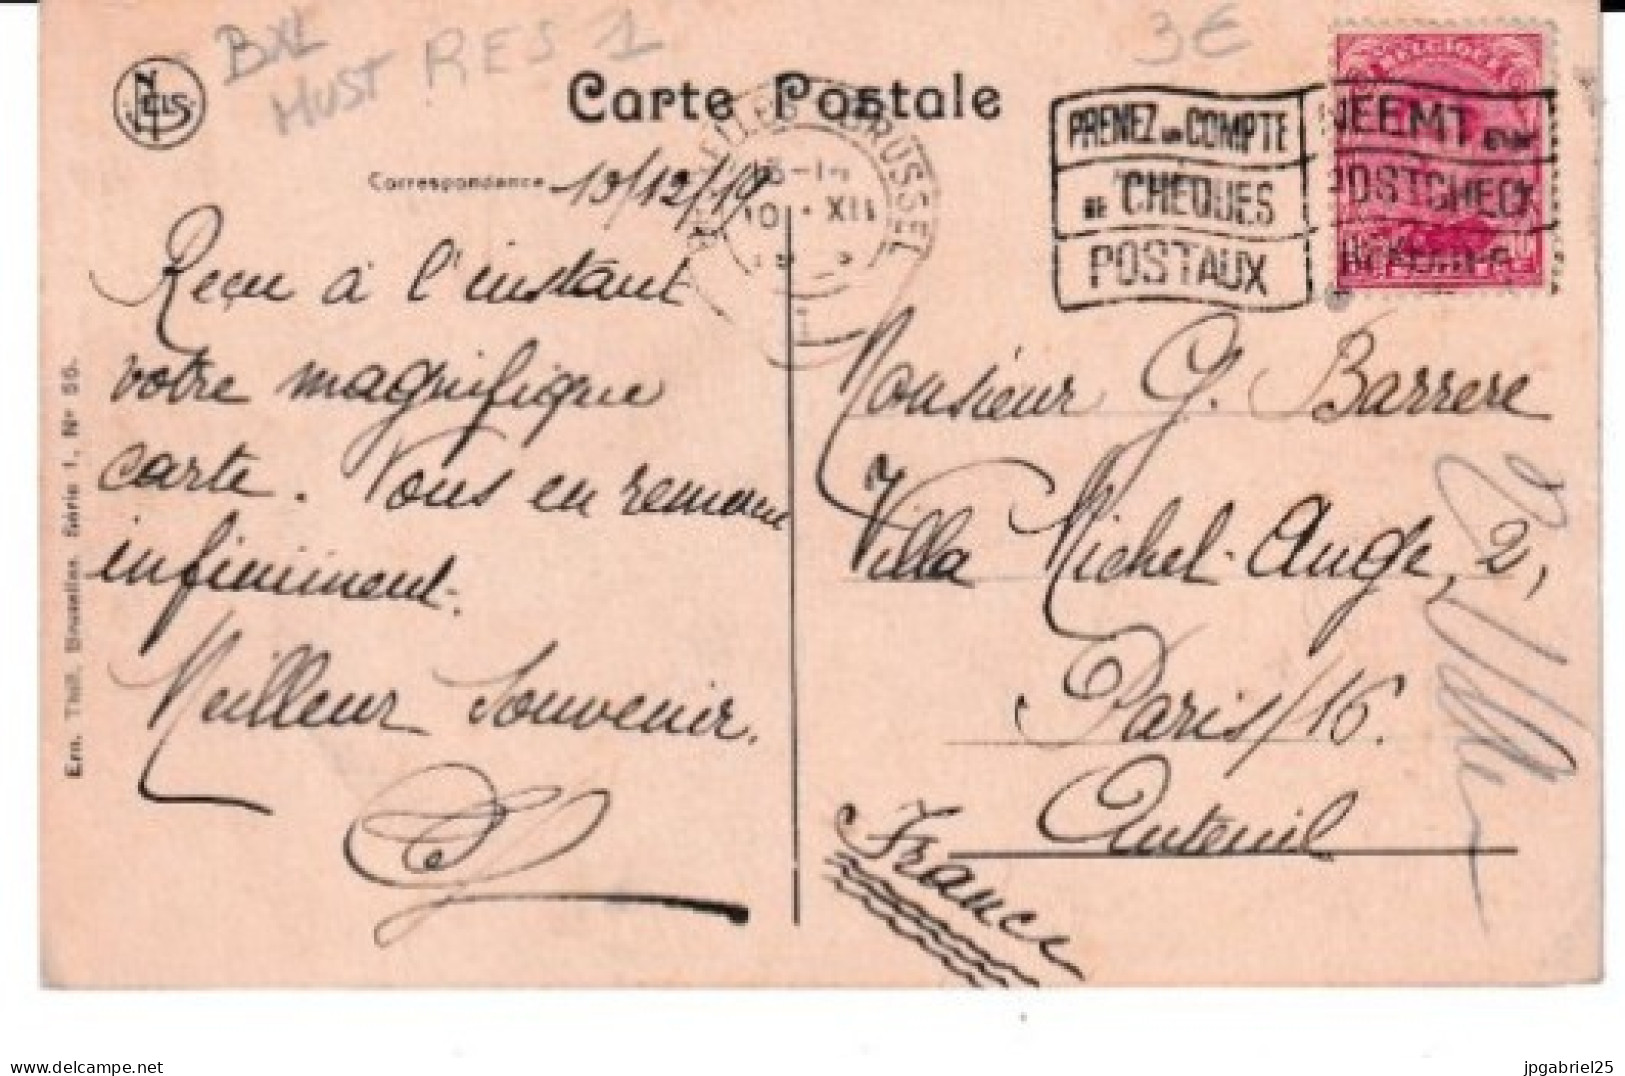 BXL
HUST RES 1
3€
NELS
Carte Postale
Correspondance
10/12/19
BRUSSEL
10 XII
PRENEZ UN COMPTE
DE CHEQUES
POSTAUX
NEEMT EENE
POSTCHECK
Reçu à l'instant
votre magnifique
carte. Vous en remercie
infiniment.
Meilleur Souvenir.
Monsieur G. Barrere
Villa Michel-Ange, 2,
Paris/16.
Auteuil
France
Ern. Thill, Bruxelles. Série 1, N° 56.
delcampe.net
jpgabriel25